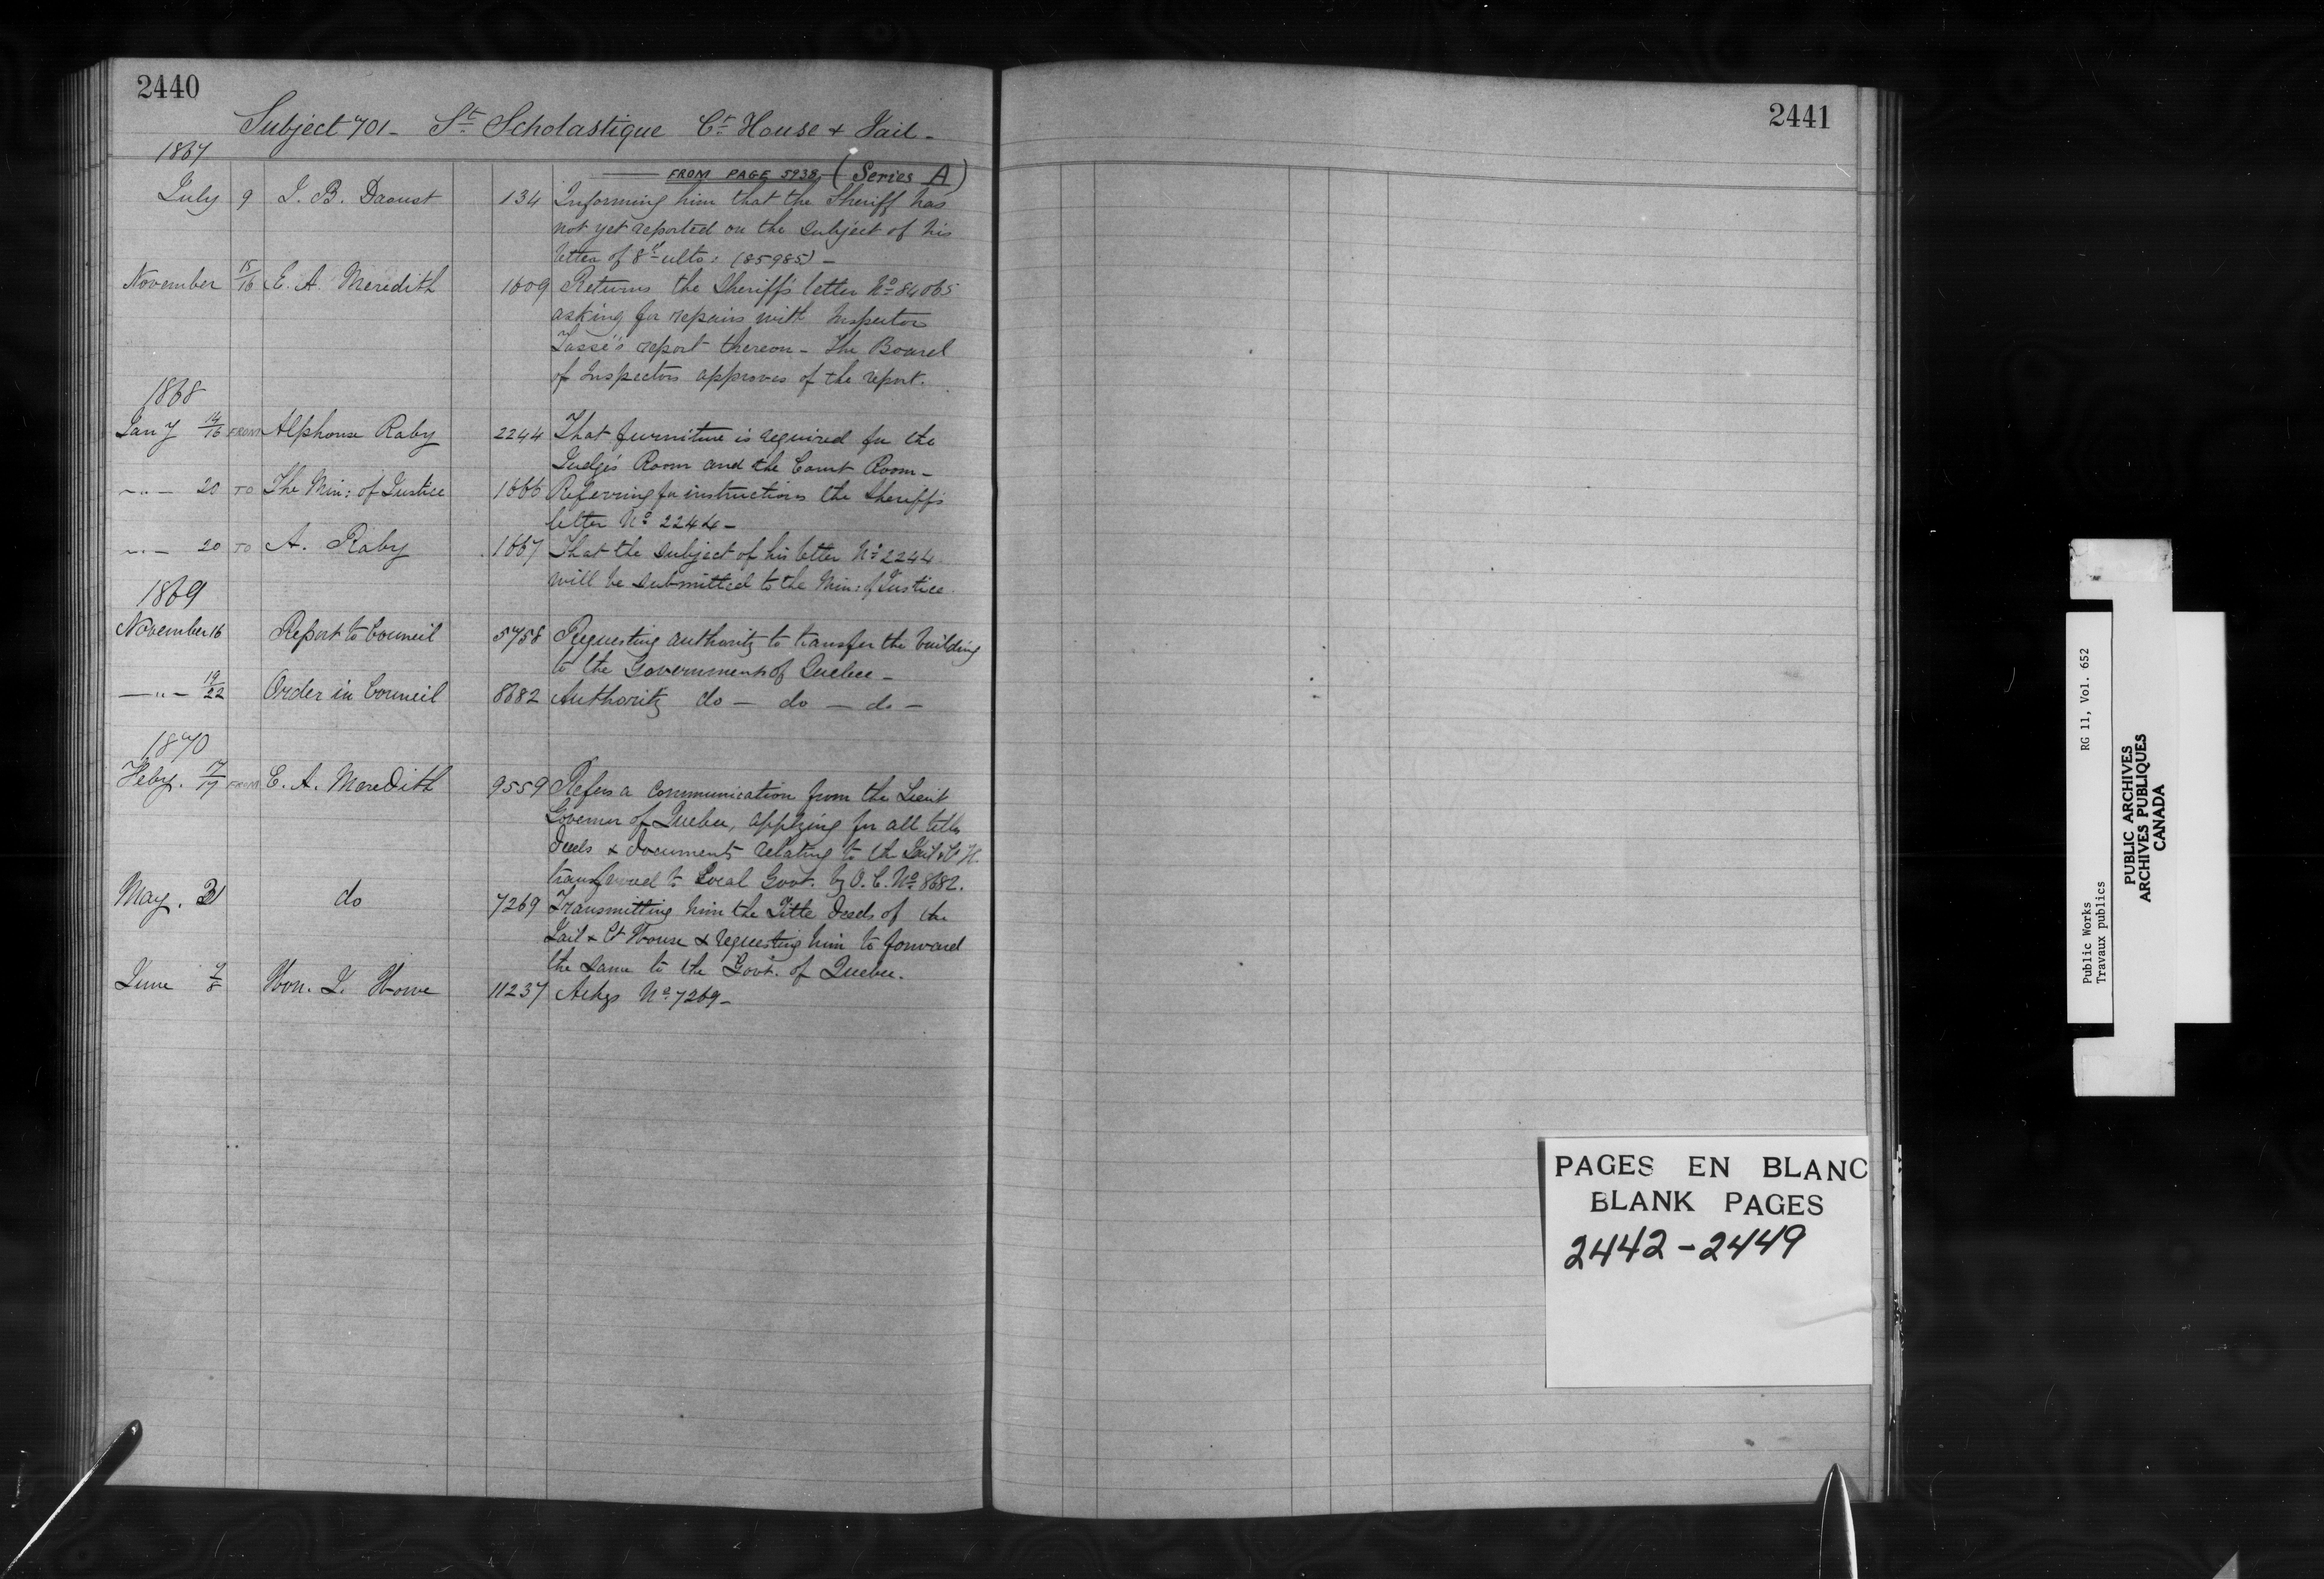 2440
Subject 701 - St Scholastique Ct House & Jail -
1867
FROM PAGE 5938 (Series A)
July 9 J. B. Daoust 134 Informing him that the Sheriff has
not yet reported on the subject of his
letter of 8th ulto: (85985) -
November 15/16 E. A. Meredith 1609 Returns the Sheriff's letter No 84065
asking for repairs with Inspector
Tassé's report thereon - The Board
of Inspectors approves of the report.
1868
Jany 14/16 FROM Alphonse Raby 2244 That furniture is required for the
Judge's Room and the Court Room -
-"- 20 TO The Min: of Justice 1666 Referring for instructions the Sheriff's
letter No 2244 -
-"- 20 TO A. Raby 1667 That the subject of his letter No 2244
will be submitted to the Min: of Justice.
1869
November 16 Report to Council 5758 Requesting authority to transfer the building
to the Government of Quebec -
-"- 19/22 Order in Council 8682 Authority do - do - do -
1870
Feby. 17/19 FROM E. A. Meredith 9559 Refers a communication from the Lieut
Governor of Quebec, applying for all title
deeds & documents relating to the Jail & Ct H.
transferred to Local Govt. by O. C. No 8682.
May. 31 do 7269 Transmitting him the Title deeds of the
Jail & Ct House & requesting him to forward
the same to the Govt. of Quebec.
June 7/8 Hon. J. Howe 11237 Ackgs No 7269 -
2441
PAGES EN BLANC
BLANK PAGES
2442-2449
Public Works RG 11, Vol. 652
Travaux publics
PUBLIC ARCHIVES
ARCHIVES PUBLIQUES
CANADA